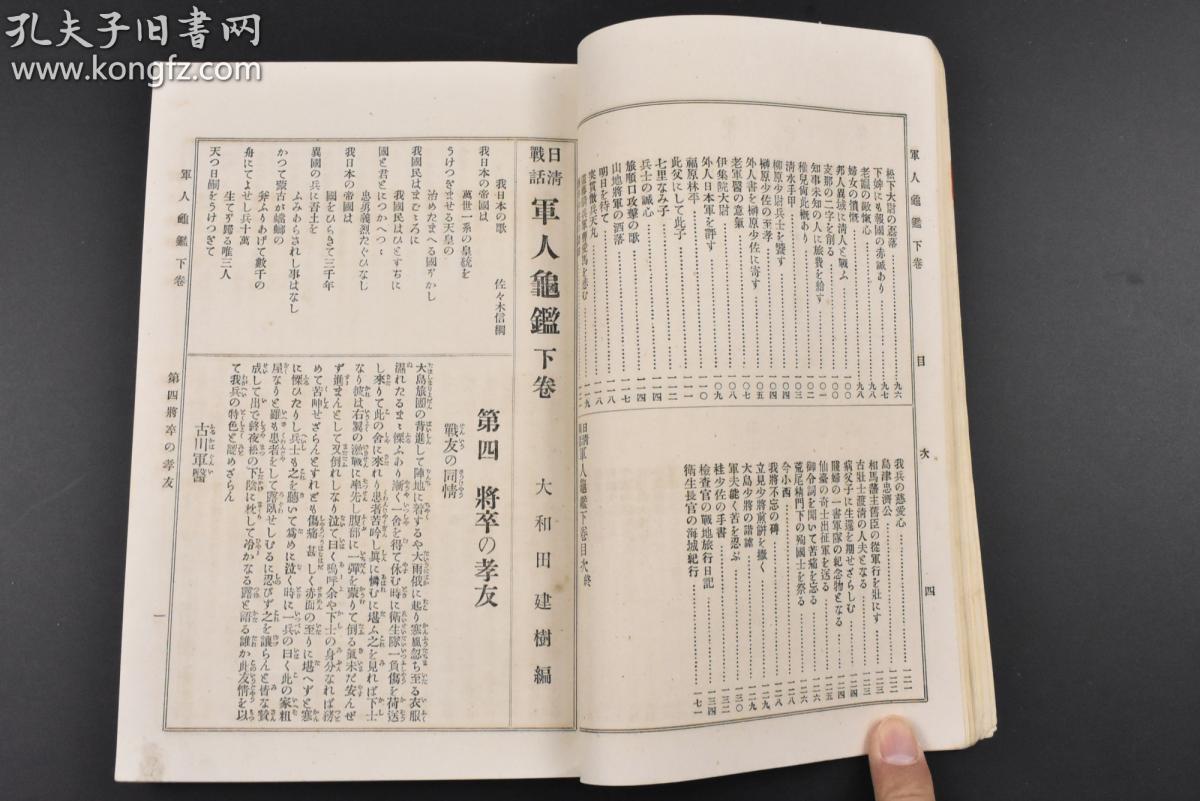 孔夫子旧书网
www.kongfz.com
軍人龜鑑下卷
目次
四
松下大尉の悲落
下婢にも報國の赤誠あり
老嫗の敵愾心
婦女の憤慨
邦人異域に淸人と戰ふ
支那の二字を削る
知事未知の人に旅費を給す
稚兒尚此槪あり
淸水手甲
柳原少尉兵士を聲す
榊原少佐の至孝
外人書を榊原少佐に寄す
老軍醫の意氣
伊集院大尉
外人日本軍を評す
福原林平
此父にして此子
七里なみ子
兵士の誠心
旅順口攻擊の歌
山地將軍の洒落
明日を待て
我兵の慈愛心
島津忠濟公
相馬藩主舊臣の從軍行を壯にす
古壯士渡淸の人夫となる
病父子に生還を期せざらしむ
賤婦の一書軍隊の紀念物となる
仙臺の奇士出征軍を送る
御令詞を聞いて苦痛を忘る
荒尾精門下の殉國士を祭る
今小西
我將不忘の碑
立見少將煎餠を撒く
大島少將の諧謔
軍夫能く苦を忍ぶ
桂少佐の手書
檢查官の戰地旅行日記
衛生長官の海城紀行
軍人龜鑑下卷目次終
日淸戰話 軍人龜鑑 下卷
大和田建樹編
我日本の歌
佐々木信綱
我日本の帝國は
萬世一系の皇統を
うけつぎませる天皇の
治めたまへる國ぞかし
我國民はまごゝろに
我國民はひとすぢに
國と君とにつかへつゝ
忠勇義烈たぐひなし
我日本の帝國は
國をひらきて三千年
異國の兵に吾土を
ふみあらされし事はなし
かつて蒙古が蟷螂の
斧ふりあげて數千の
舟にてよせし兵十萬
生て歸る唯三人
天つ日嗣をうけつぎて
第四 將卒の孝友
戰友の同情
大島旅團の背進して陣地に着するや大雨俄に起り寒風忽ち至る衣服
濕れたるまゝ慄ふあり漸く一舍を得て休む時に衛生隊一負傷を荷送
し來りて此の舍に來れり患者苦吟し眞に憐むに堪ふ之を見れば下士
なり彼は右翼の激戰に率先し腹部に一彈を蒙りて倒る氣未だ安んぜ
ず進まんとして又倒れしなり泣て曰く嗚呼余や下士の身分なれば務
めて苦呻せざらんとすれども傷痛甚しく赤面の至りに堪へずと寒
に慄ひたりし兵士も之を聽いて爲めに泣く時に一兵の曰く此の家粗
屋なりと雖も患者をして露臥せしむるに忍びず之を讓らんと皆な贊
成して出で終夜松の下陰に枕して冷かなる露と語る誰か此友情を以
て我兵の特色と認めざらん
古川軍醫
軍人龜鑑下卷
第四將卒の孝友
一